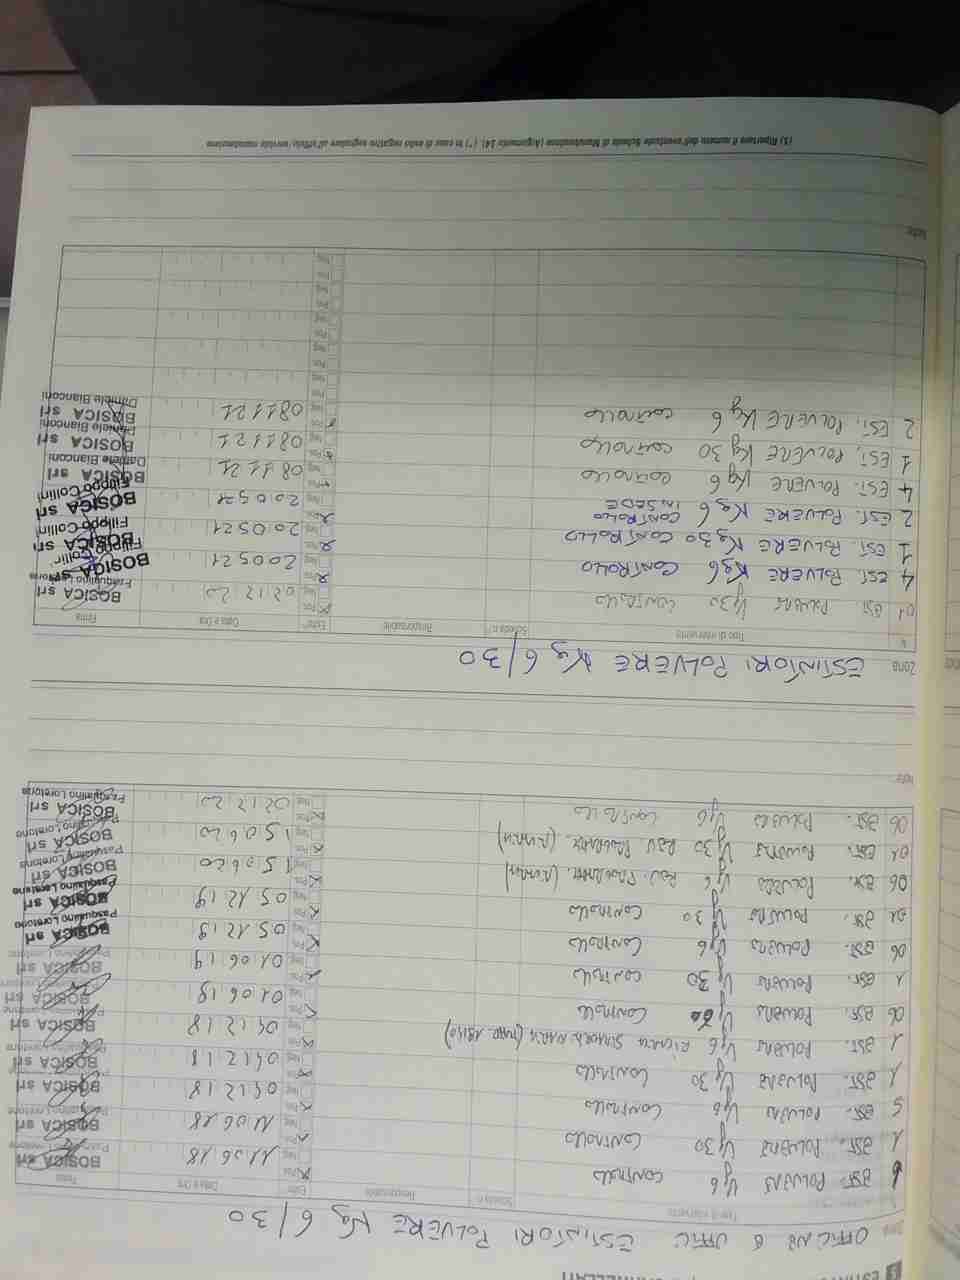 OFFICINE E UFFICI ESTINTORI POLVERE Kg 6/30
Tipo di intervento Scheda n. Responsabile Esito Data e Ora Firma
6 EST. POLVERE Kg 6 CONTROLLO Pos. Neg. 11 06 18 BOSICA srl
1 EST. POLVERE Kg 30 CONTROLLO Pos. Neg. 11 06 18 BOSICA srl
5 EST. POLVERE Kg 6 CONTROLLO Pos. Neg. 04 12 18 BOSICA srl
1 EST. POLVERE Kg 30 CONTROLLO Pos. Neg. 04 12 18 BOSICA srl
1 EST. POLVERE Kg 6 Pos. Neg. 04 12 18 BOSICA srl
06 EST. POLVERE Kg CONTROLLO Pos. Neg. 01 06 19 BOSICA srl
1 EST. POLVERE Kg 30 CONTROLLO Pos. Neg. 01 06 19 BOSICA srl
06 EST. POLVERE Kg 6 CONTROLLO Pos. Neg. 05 12 19 BOSICA srl Pasqualino Loretone
01 EST. POLVERE Kg 30 CONTROLLO Pos. Neg. 05 12 19 BOSICA srl Pasqualino Loretone
06 EST. POLVERE Kg 6 Pos. Neg. 15 06 20 BOSICA srl Pasqualino Loretone
01 EST. POLVERE Kg 30 Pos. Neg. 15 06 20 BOSICA srl Pasqualino Loretone
06 EST. POLVERE Kg 6 CONTROLLO Pos. Neg. 02 12 20 BOSICA srl Pasqualino Loretone
Note
Zona ESTINTORI POLVERE Kg 6/30
N. Tipo di intervento Scheda n. Responsabile Esito Data e Ora Firma
01 EST. POLVERE Kg 30 CONTROLLO Pos. Neg. 02 12 20 BOSICA srl Pasqualino Loretone
4 EST. POLVERE Kg 6 CONTROLLO Pos. Neg. 20 05 21 BOSICA srl Filippo Collini
1 EST. POLVERE Kg 30 CONTROLLO Pos. Neg. 20 05 21 BOSICA srl Filippo Collini
2 EST. POLVERE Kg 6 CONTROLLO IN SEDE Pos. Neg. 20 05 21 BOSICA srl Filippo Collini
4 EST. POLVERE Kg 6 CONTROLLO Pos. Neg. 08 11 21 BOSICA srl Daniele Bianconi
1 EST. POLVERE Kg 30 CONTROLLO Pos. Neg. 08 11 21 BOSICA srl Daniele Bianconi
2 EST. POLVERE Kg 6 CONTROLLO Pos. Neg. 08 11 21 BOSICA srl Daniele Bianconi
Pos. Neg.
Pos. Neg.
Pos. Neg.
Pos. Neg.
Pos. Neg.
Note
(1) Riportare il numero dell'eventuale Scheda di Manutenzione (Argomento 14). (*) In caso di esito negativo segnalare all'ufficio/servizio manutenzione